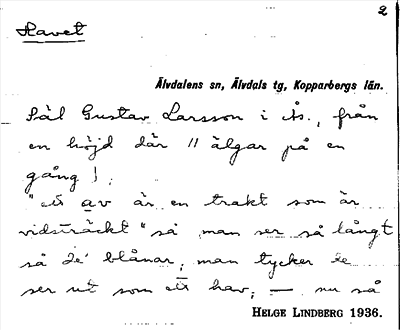 2
Havet
Älvdalens sn, Älvdals tg, Kopparbergs län.
Säl Gustav Larsson i Ås., från
en höjd där 11 älgar på en
gång!
"ett av är en trakt som är
vidsträckt" så man ser så långt
så de' blånar, man tycker de
ser ut som ett hav, — nu så
HELGE LINDBERG 1936.